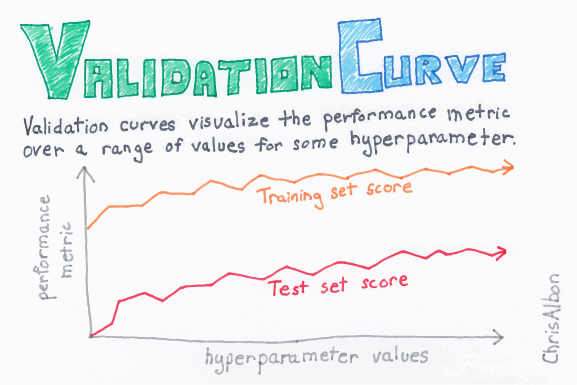 VALIDATION CURVE
Validation curves visualize the performance metric
over a range of values for some hyperparameter.
Training set score
performance
metric
Test set score
hyperparameter values
ChrisAlbon